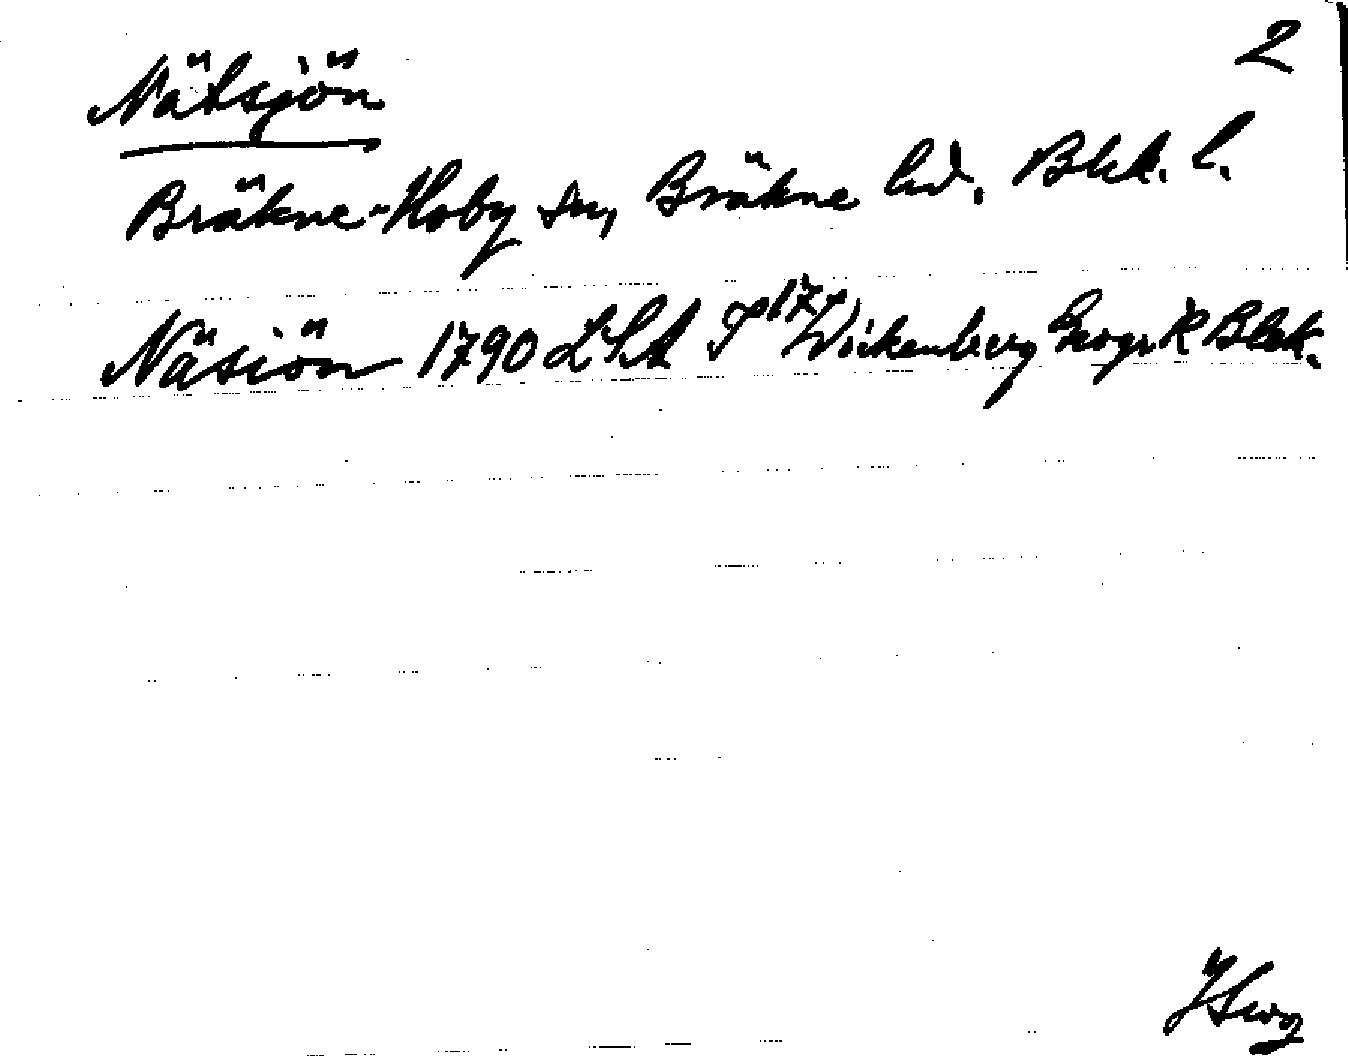 2
Nätsjön
Bräkne-Hoby sn, Bräkne hd. Blek. l.
Näsiön 1790 LSA T 17 Wickenberg Geogr K Blek.